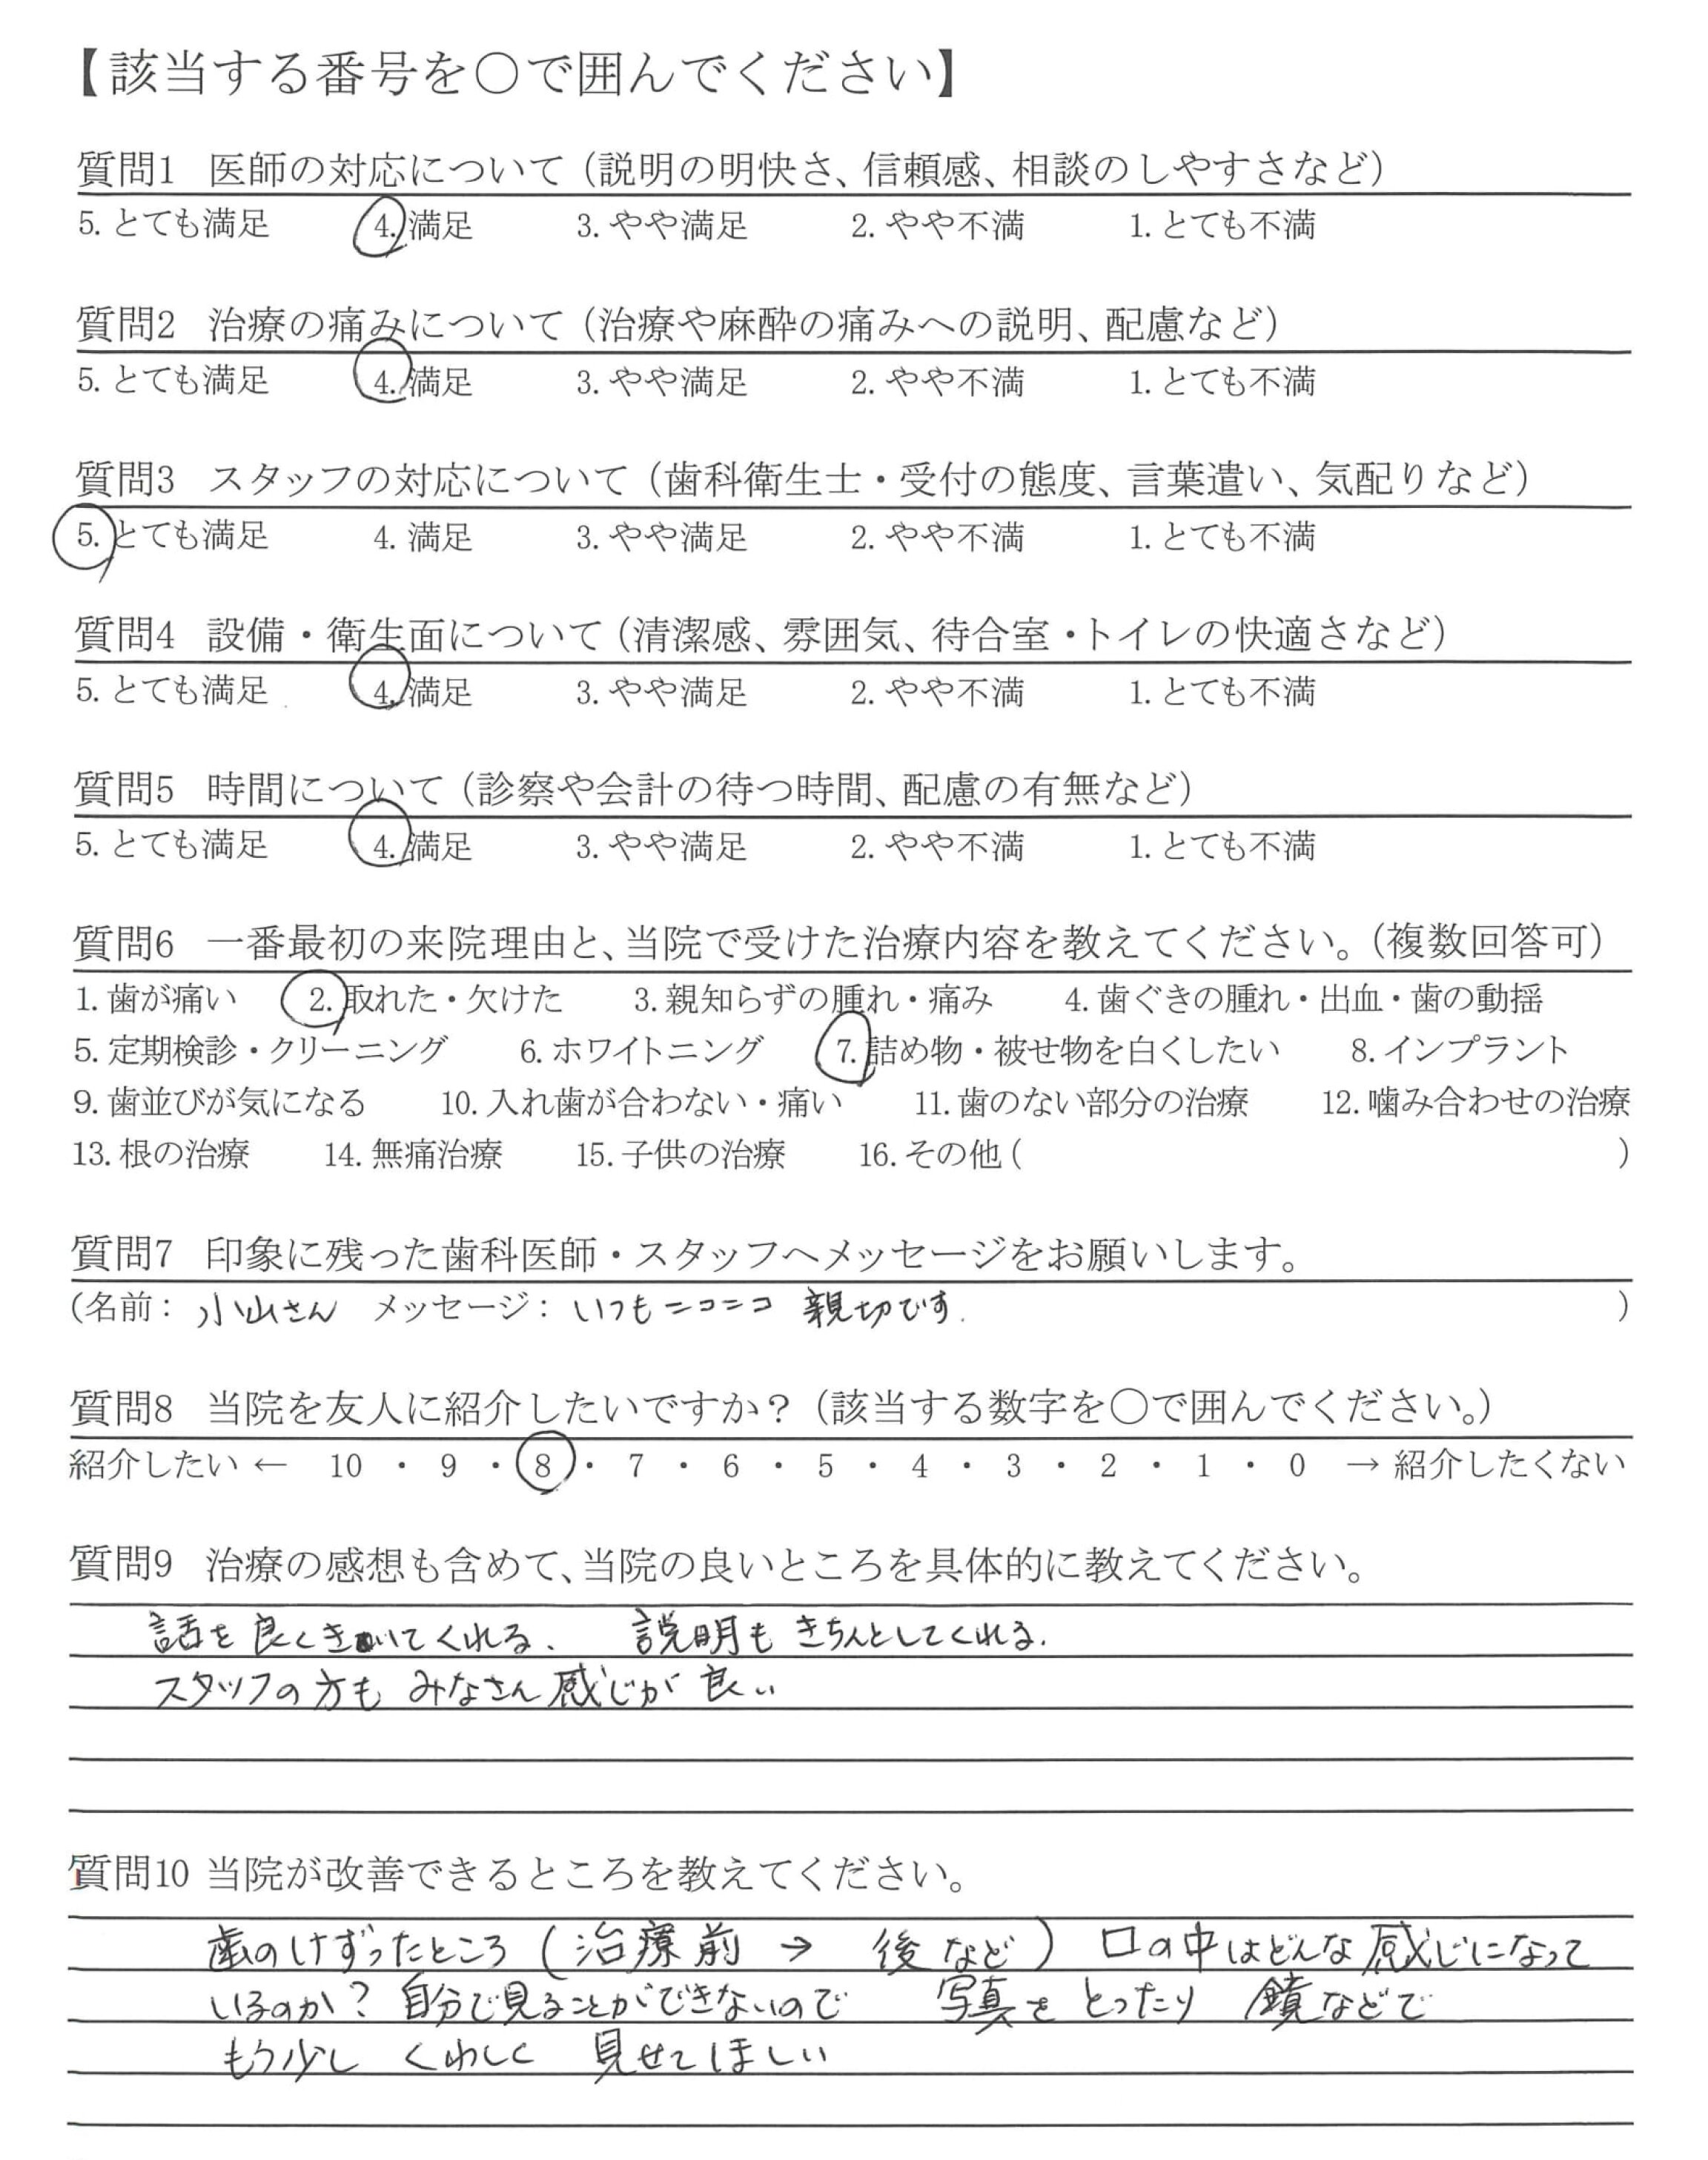 【該当する番号を○で囲んでください】
質問1 医師の対応について（説明の明快さ、信頼感、相談のしやすさなど）
5. とても満足 4. 満足 3. やや満足 2. やや不満 1. とても不満
質問2 治療の痛みについて（治療や麻酔の痛みへの説明、配慮など）
5. とても満足 4. 満足 3. やや満足 2. やや不満 1. とても不満
質問3 スタッフの対応について（歯科衛生士・受付の態度、言葉遣い、気配りなど）
5. とても満足 4. 満足 3. やや満足 2. やや不満 1. とても不満
質問4 設備・衛生面について（清潔感、雰囲気、待合室・トイレの快適さなど）
5. とても満足 4. 満足 3. やや満足 2. やや不満 1. とても不満
質問5 時間について（診察や会計の待つ時間、配慮の有無など）
5. とても満足 4. 満足 3. やや満足 2. やや不満 1. とても不満
質問6 一番最初の来院理由と、当院で受けた治療内容を教えてください。（複数回答可）
1. 歯が痛い 2. 取れた・欠けた 3. 親知らずの腫れ・痛み 4. 歯ぐきの腫れ・出血・歯の動揺
5. 定期検診・クリーニング 6. ホワイトニング 7. 詰め物・被せ物を白くしたい 8. インプラント
9. 歯並びが気になる 10. 入れ歯が合わない・痛い 11. 歯のない部分の治療 12. 噛み合わせの治療
13. 根の治療 14. 無痛治療 15. 子供の治療 16. その他（ ）
質問7 印象に残った歯科医師・スタッフへメッセージをお願いします。
（名前： 小山さん メッセージ： いつもニコニコ 親切です. ）
質問8 当院を友人に紹介したいですか？（該当する数字を○で囲んでください。）
紹介したい ← 10 ・ 9 ・ 8 ・ 7 ・ 6 ・ 5 ・ 4 ・ 3 ・ 2 ・ 1 ・ 0 → 紹介したくない
質問9 治療の感想も含めて、当院の良いところを具体的に教えてください。
話を良くきいてくれる. 説明もきちんとしてくれる.
スタッフの方も みなさん感じが良い
質問10 当院が改善できるところを教えてください。
歯のけずったところ（治療前 → 後など）口の中はどんな感じになって
いるのか？ 自分で見ることができないので 写真をとったり 鏡などで
もう少し くわしく 見せてほしい